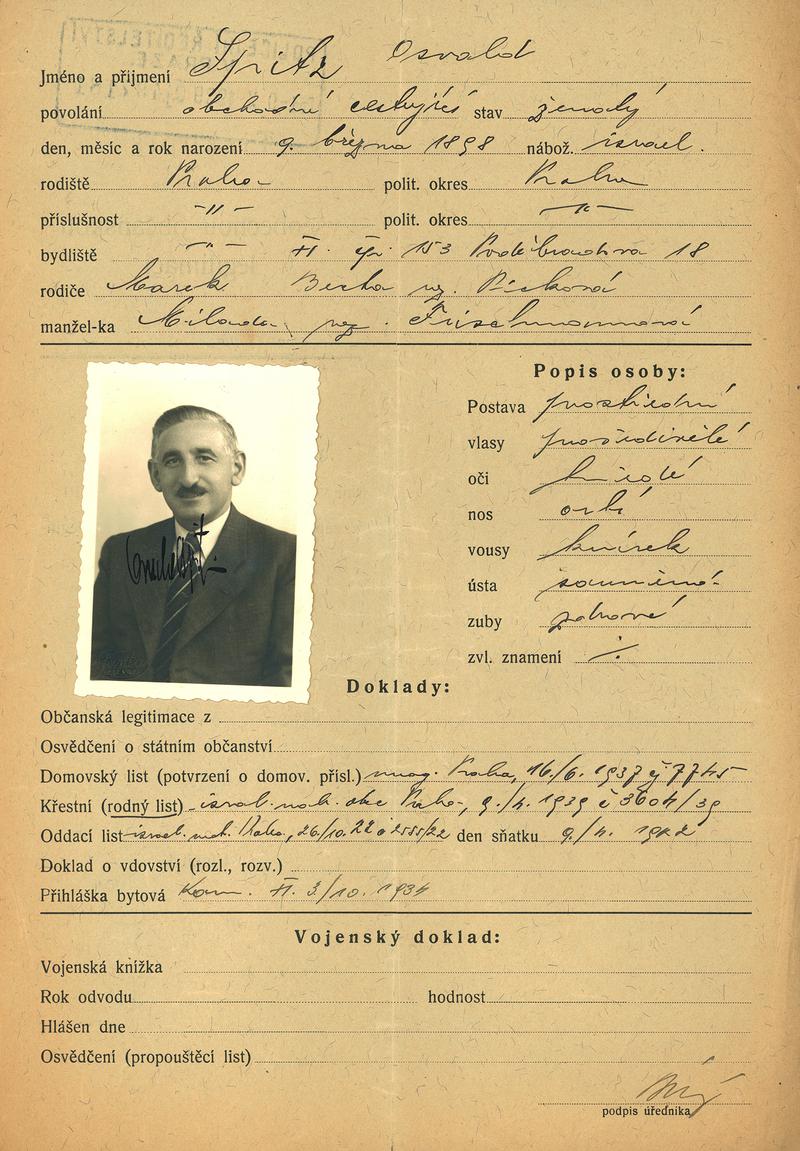 Jméno a přijmení Spitz Osvald
povolání obchodní cestující stav ženatý
den, měsíc a rok narození 9. března 1898 nábož. israel.
rodiště Praha polit. okres Praha
příslušnost -"- polit. okres -"-
bydliště -"- čp. 153 Poděbradova 18
rodiče Marek Berta roz. Picková
manžel-ka Milada roz. Frischmannová
Popis osoby:
Postava prostřední
vlasy prošedivělé
oči hnědé
nos orlí
vousy knírek
ústa souměrná
zuby zdravé
zvl. znamení ·/·
Doklady:
Občanská legitimace z
Osvědčení o státním občanství
Domovský list (potvrzení o domov. přísl.) mag. Praha, 16./6. 1937 č 7745
Křestní (rodný list) israel. nab. obec Praha, 9./4. 1939 č 3604/39
Oddací list israel. Praha, 26./10. 22 č 2555/22 den sňatku 9./4. 1922
Doklad o vdovství (rozl., rozv.)
Přihláška bytová Kom. 3./10. 1934
Vojenský doklad:
Vojenská knížka
Rok odvodu hodnost
Hlášen dne
Osvědčení (propouštěcí list)
podpis úředníka